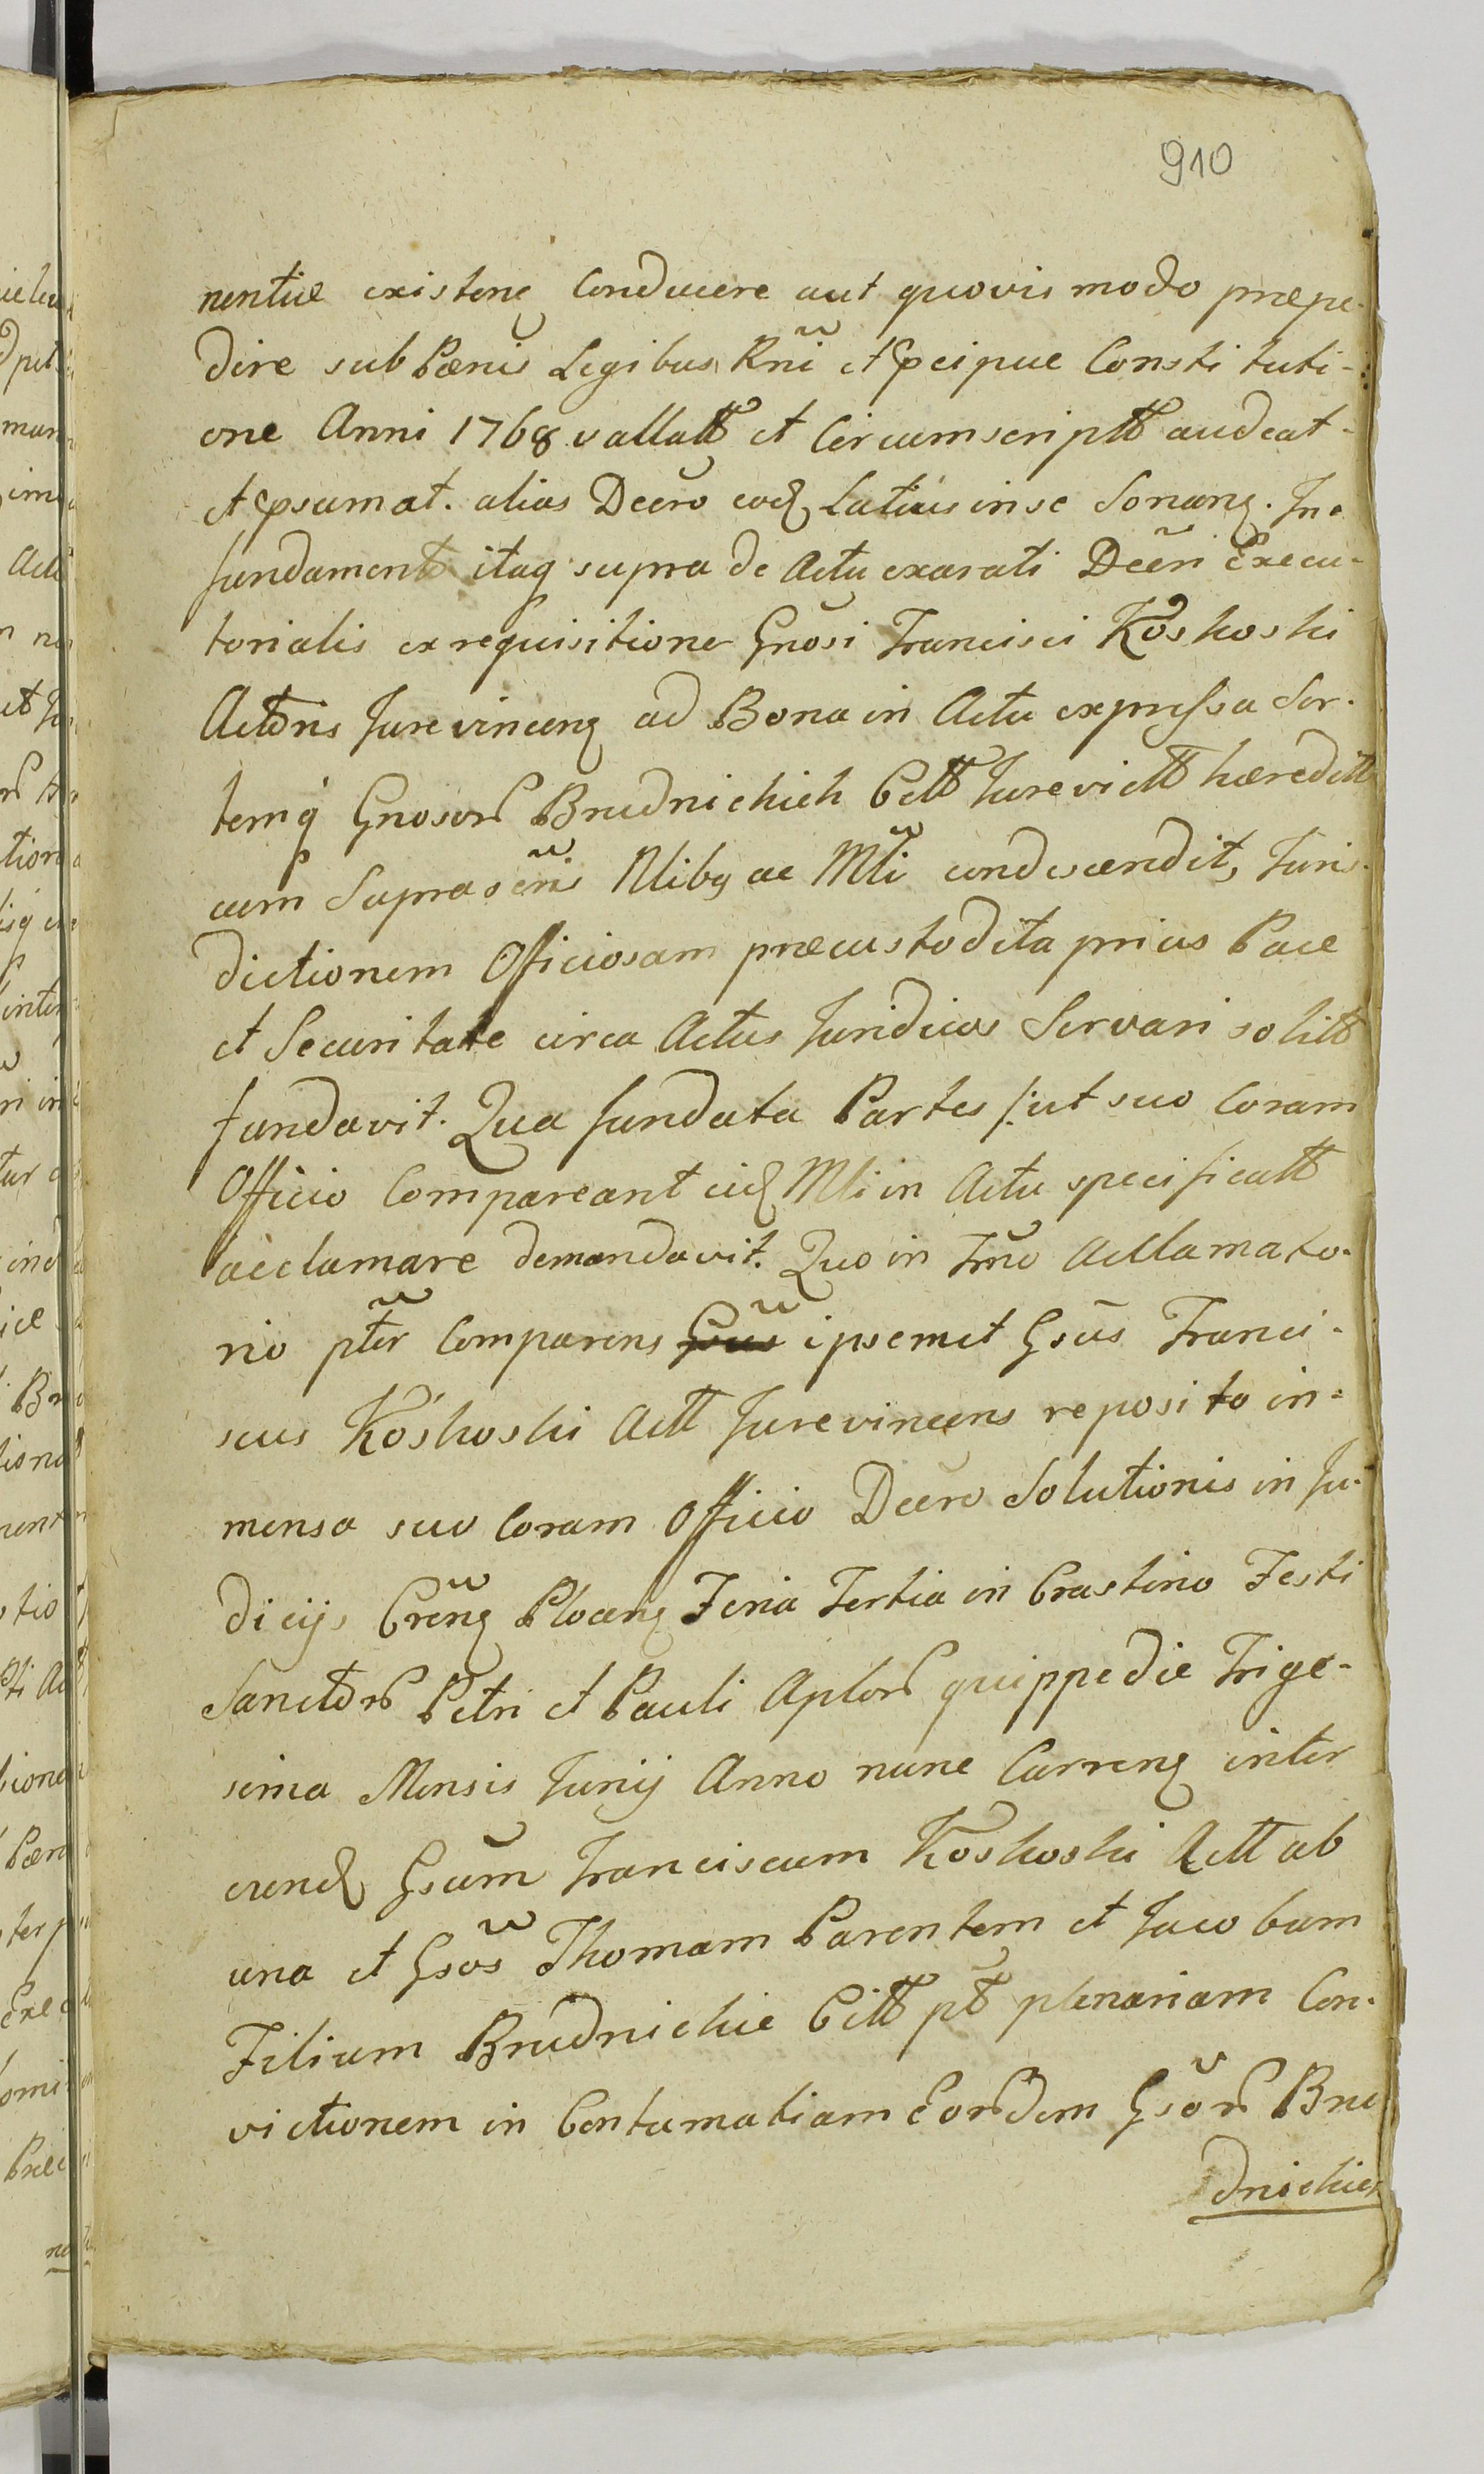 910
nentiæ existenē Conducere aut quovis modo præpe-
dire sub Pœnis Legibus Rñi et Pcipue Constituti-
one Anni 1768 vallatt et Circumscriptt audeat-
et Psumat. alias Decro eod Latius in se Sonanē. In
fundament itaq supra de Actu exarati Decri Execu-
torialis ex requisitione Gnosi Francisci Koskoski
Actoris Jurevincenē ad Bona in Actu expressa Sor-
temq Gnosor Brudnickich Citt Jurevictt hæreditt
cum Suprascñis Nlibq ac Mli condescendit, Juris-
dictionem Officiosam præcustodita prius Pace
et Securitate circa Actus Juridicos Servari solitt
fundavit. Qua fundata Partes /: ut suo Coram
Officio Compareant eid Mli in Actu specificatt
acclamare demandavit. Quo in Tmo acclamato-
rio pter Comparens Gsus ipsemet Gsus Franci-
scus Koskoski Actt Jurevincens reposito in-
mensa suo Coram Officio Decro Solutionis in Ju-
dicijs Crenē Plocenē Feria Tertia in Crastino Festi
Sanctor Petri et Pauli Aplor quippe die Trige-
sima Mensis Junij Anno nunc Currenē inter
eund Gsum Franciscum Koskoski Actt ab
una et Gsos Thomam Parentem et Jacobum
Filium Brudnickie Citt pt plenariam Con-
victionem in Contumatiam Eordem Gsor Bru
dnickich